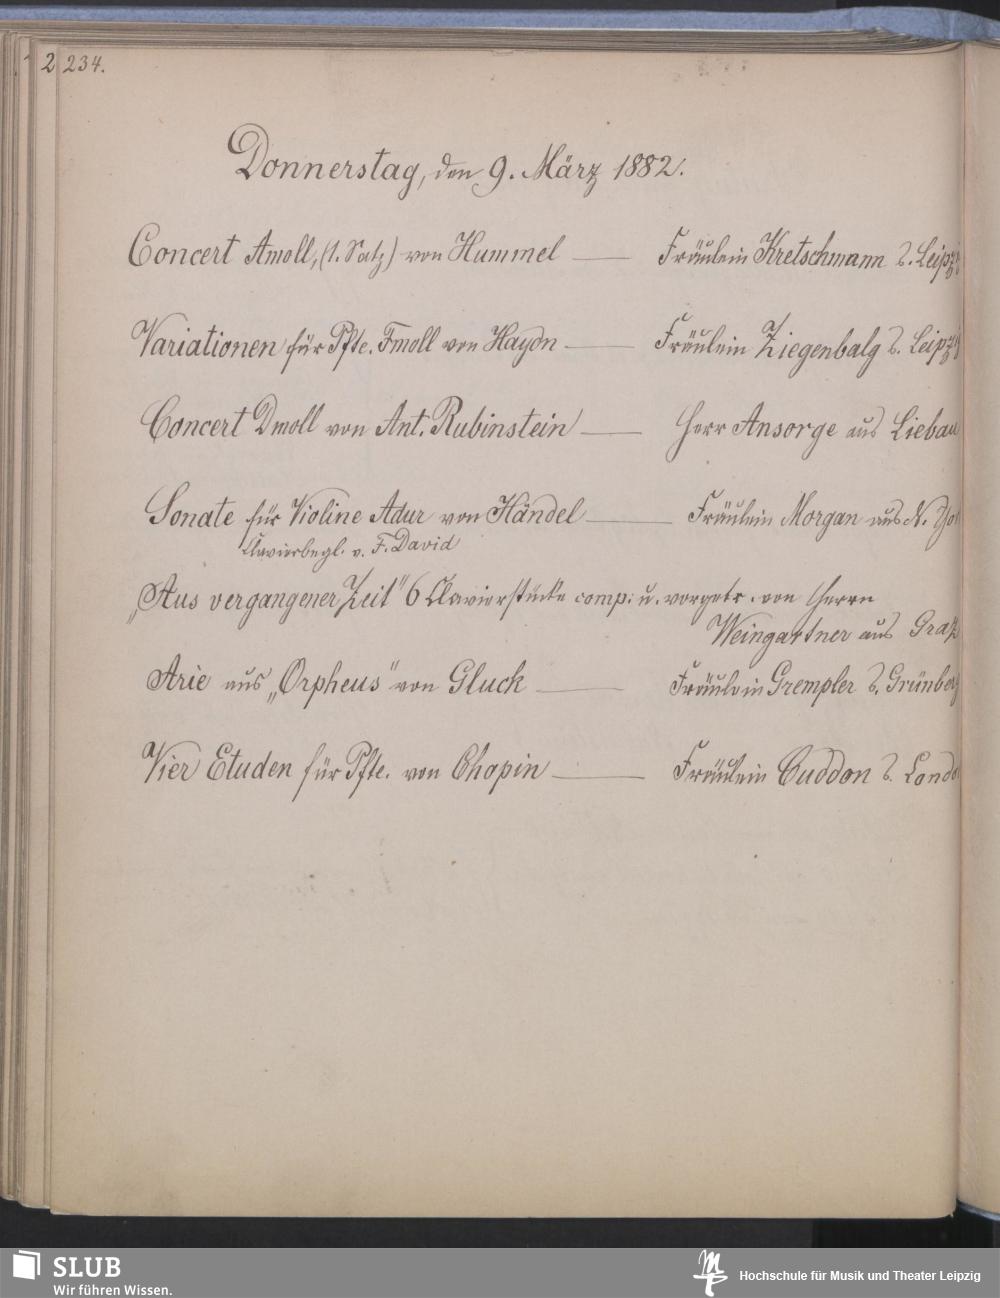 2 234.
Donnerstag, den 9. März 1882.
Concert Amoll, (1. Satz) von Hummel — Fräulein Kretschmann a. Leipzi
Variationen für Pfte. Fmoll von Haydn — Fräulein Ziegenbalg a. Leipzig
Concert Dmoll von Ant. Rubinstein — Herr Ansorge aus Liebau
Sonate für Violine Adur von Händel — Fräulein Morgan aus N. Yor
Clavierbegl. v. F. David
„Aus vergangener Zeit" 6 Clavierstücke comp: u. vorgetr. von Herrn
Weingartner aus Graz
Arie aus „Orpheus" von Gluck — Fräulein Grempler a. Grünberg
Vier Etuden für Pfte. von Chopin — Fräulein Cuddon a. Londo
SLUB
Wir führen Wissen.
Hochschule für Musik und Theater Leipzig